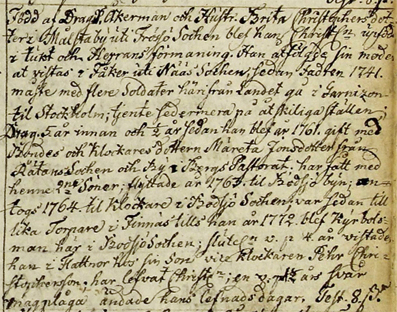 Född af Drag. P. Åkerman och Hustr. Brita Christophers dot-
ter i Mälstaby uti Frösö Sochen blef han Christl:n upfödd
i tukt och Herrans förmaning. Han åtföljde sin moder
at vistas i Fåker uti Näås Sochen, sedan Fadren 1741
måste med flere Soldater härifrån landet gå i Garnizon
til Stockholm; tjente sedermera på åtskilliga ställen;
Drag. 5 år innan och 1/2 år sedan han blef år 1761. gift med
Bondes och Klockares dottern Mareta Jonsdotter från
Rätans Sochen och By i Bergs Pastorat. har fått med
henne Söner; flyttade år 1763 til Bodsjö byn; an-
togs 1764 til Klockare i Bodsjö Sochen; var sedan till
lika Torpare i Finnäs tills han år 1772. blef Kyrkols-
man här i Bodsjö Sochen; slutel:n v. p. 4 år vistades
han i Hattnor hos sin Son vice klockaren Pehr Chri-
stophersson. har lefvat Christl:n; en v. p. års svår
magplåga ändade hans lefnads dagar. Test. 8. 15.